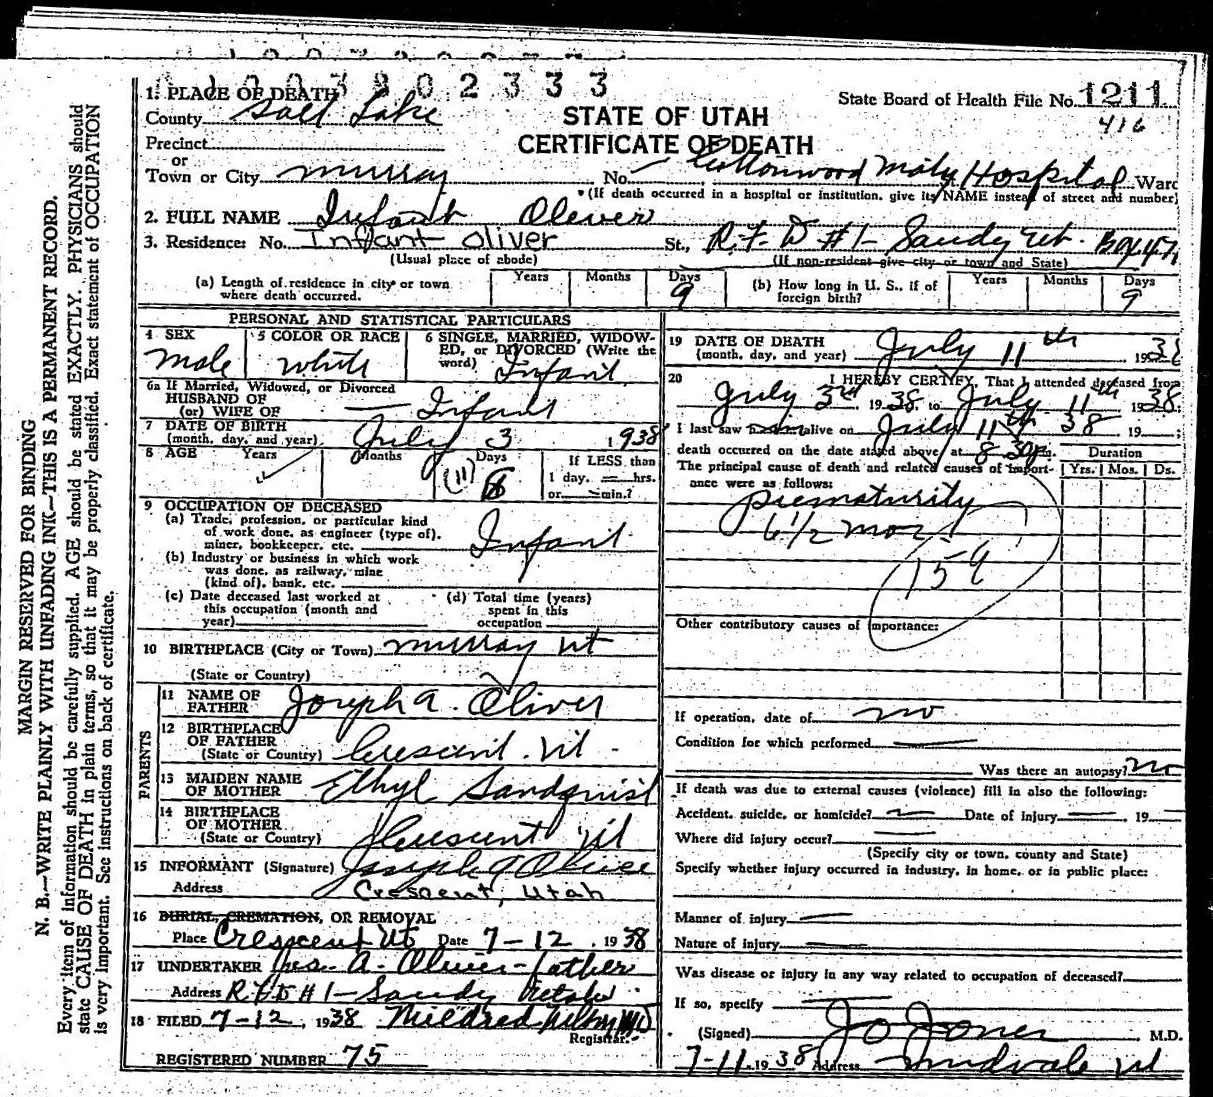 1003802333
1. PLACE OF DEATH
County Salt Lake
STATE OF UTAH
CERTIFICATE OF DEATH
State Board of Health File No. 1211
416
Precinct
or
Town or City Murray No. Cottonwood Maty Hospital Ward
(If death occurred in a hospital or institution, give its NAME instead of street and number)
2. FULL NAME Infant Oliver
3. Residence: No. Infant Oliver St., R.F.D #1- Sandy Ut. Box 47
(Usual place of abode) (If non-resident give city or town and State)
(a) Length of residence in city or town where death occurred. Years Months Days 9
(b) How long in U. S., if of foreign birth? Years Months Days 9
PERSONAL AND STATISTICAL PARTICULARS
4 SEX Male
5 COLOR OR RACE White
6 SINGLE, MARRIED, WIDOWED, or DIVORCED (Write the word) Infant
6a If Married, Widowed, or Divorced
HUSBAND OF
(or) WIFE OF — Infant
7 DATE OF BIRTH
(month, day, and year) July 3 1938
8 AGE Years Months Days (11) 8
If LESS than
1 day, — hrs.
or — min.?
9 OCCUPATION OF DECEASED
(a) Trade, profession, or particular kind
of work done, as engineer (type of),
miner, bookkeeper, etc. Infant
(b) Industry or business in which work
was done, as railway, mine
(kind of), bank, etc.
(c) Date deceased last worked at
this occupation (month and
year)
(d) Total time (years)
spent in this
occupation
10 BIRTHPLACE (City or Town) Murray Ut
(State or Country)
PARENTS
11 NAME OF
FATHER Joseph A. Oliver
12 BIRTHPLACE
OF FATHER
(State or Country) Crescent, Ut -
13 MAIDEN NAME
OF MOTHER Ethyl Sandquist
14 BIRTHPLACE
OF MOTHER
(State or Country) Crescent Ut
15 INFORMANT (Signature) Joseph A Oliver
Address Crescent, Utah
16 BURIAL, CREMATION, OR REMOVAL
Place Crescent Ut Date 7-12, 1938
17 UNDERTAKER Jos. A. Oliver - father
Address R.F.D #1- Sandy Utah
18 FILED 7-12, 1938 Mildred Nelson MD
Registrar.
REGISTERED NUMBER 75
19 DATE OF DEATH
(month, day, and year) July 11th 1938
20 I HEREBY CERTIFY, That I attended deceased from
July 3rd, 1938, to July 11th 1938;
I last saw him alive on July 11th 38 19 ;
death occurred on the date stated above, at 8:30p m.
The principal cause of death and related causes of importance were as follows:
Duration
Yrs. Mos. Ds.
Prematurity
6 1/2 mo.
159
Other contributory causes of importance:
If operation, date of no
Condition for which performed —
Was there an autopsy? no
If death was due to external causes (violence) fill in also the following:
Accident, suicide, or homicide? — Date of injury — 19
Where did injury occur? —
(Specify city or town, county and State)
Specify whether injury occurred in industry, in home, or in public place:
Manner of injury —
Nature of injury —
Was disease or injury in any way related to occupation of deceased?
If so, specify —
(Signed) Jo Jones M.D.
7-11, 1938 Address Midvale Ut
MARGIN RESERVED FOR BINDING
N. B.—WRITE PLAINLY WITH UNFADING INK—THIS IS A PERMANENT RECORD.
Every item of information should be carefully supplied. AGE should be stated EXACTLY. PHYSICIANS should
state CAUSE OF DEATH in plain terms, so that it may be properly classified. Exact statement of OCCUPATION
is very important. See instructions on back of certificate.